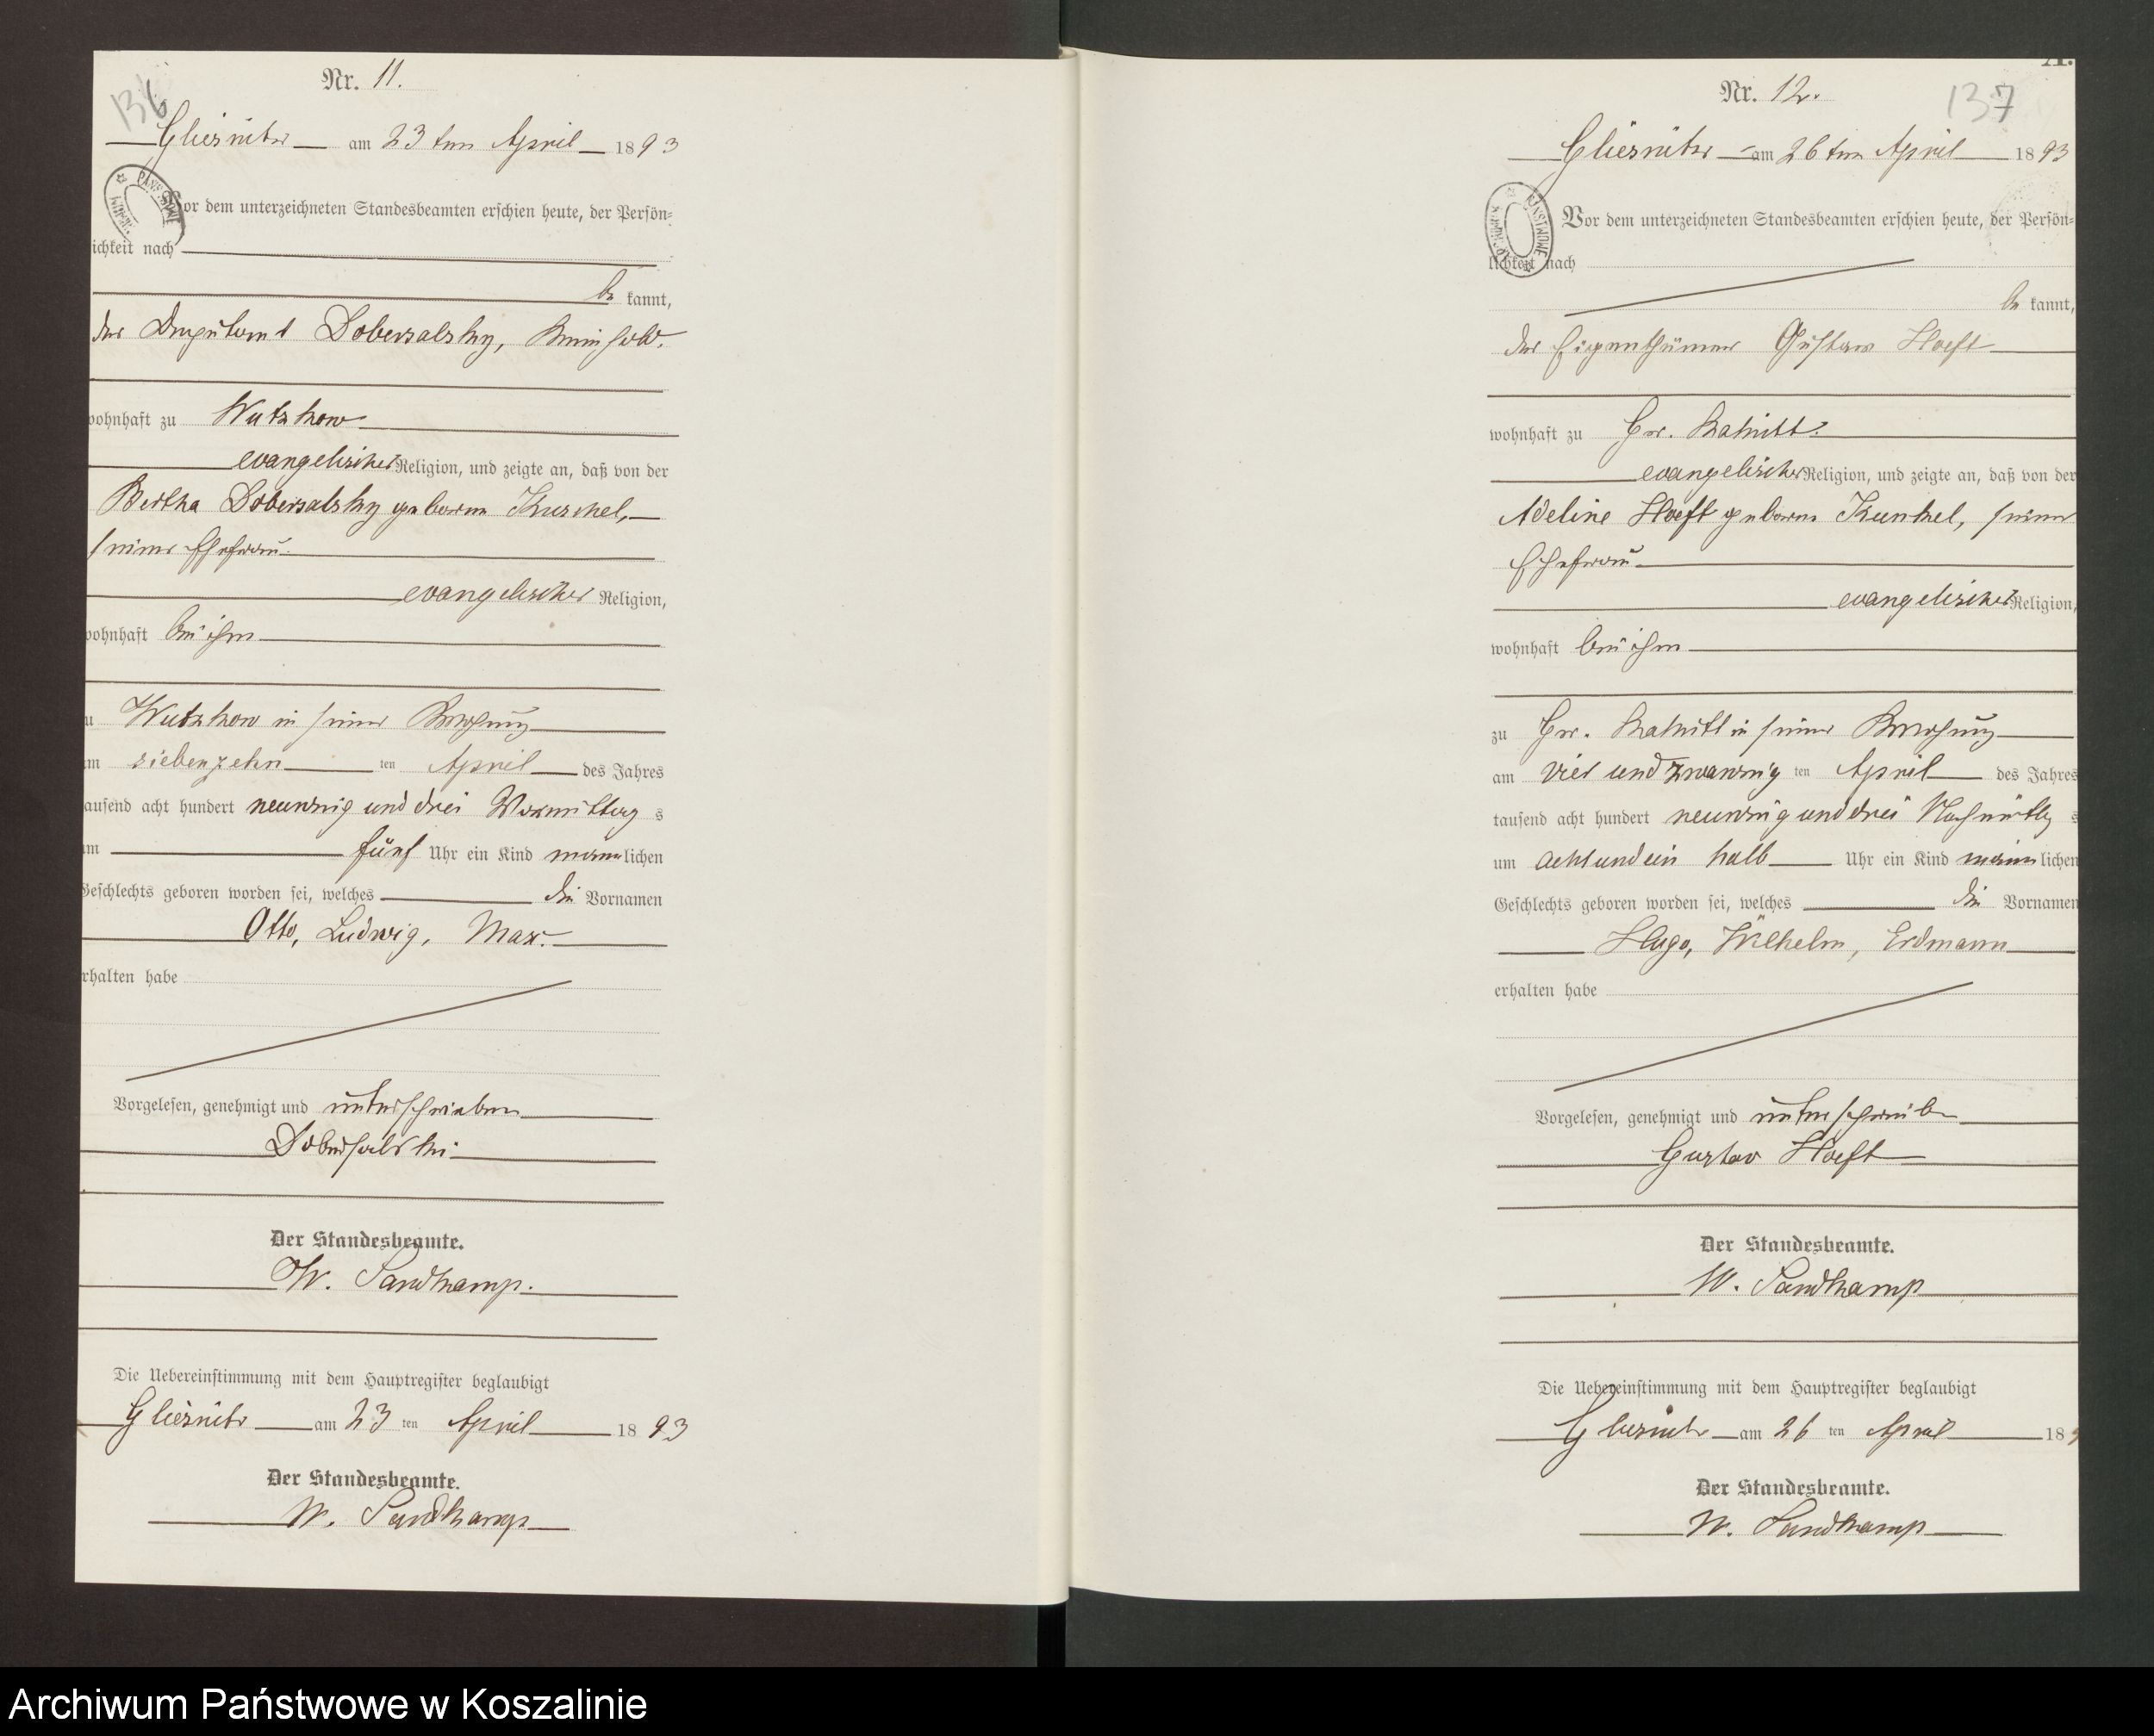 136
Nr. 11.
Gliesnitz am 23 ten April 1893
Vor dem unterzeichneten Standesbeamten erschien heute, der Persön-
ichkeit nach
be kannt,
der Dobersalsky,
wohnhaft zu Wutzkow
evangelischer Religion, und zeigte an, daß von der
Bertha Dobersalsky geborene Kuschel,
seiner Ehefrau
evangelischer Religion,
wohnhaft bei ihm
u Wutzkow in seiner Wohnung
am siebenzehn ten April des Jahres
tausend acht hundert neunzig und drei Vormittag s
um fünf Uhr ein Kind männlichen
Geschlechts geboren worden sei, welches die Vornamen
Otto, Ludwig, Max.
erhalten habe
Vorgelesen, genehmigt und unterschrieben
Dobersalski
Der Standesbeamte.
W. Sandkamp.
Die Uebereinstimmung mit dem Hauptregister beglaubigt
Gliesnitz am 23 ten April 1893
Der Standesbeamte.
W. Sandkamp
137
Nr. 12.
Gliesnitz am 26 ten April 1893
Vor dem unterzeichneten Standesbeamten erschien heute, der Persön-
lichkeit nach
be kannt,
der Eigenthümer Gustav Hoeft
wohnhaft zu Gr.
evangelischer Religion, und zeigte an, daß von der
Adeline Hoeft geborene Kunkel, seiner
Ehefrau
evangelischer Religion,
wohnhaft bei ihm
zu Gr. in seiner Wohnung
am vier und zwanzig ten April des Jahres
tausend acht hundert neunzig und drei Nachmittag s
um acht und ein halb Uhr ein Kind männlichen
Geschlechts geboren worden sei, welches die Vornamen
Hugo, Wilhelm, Erdmann
erhalten habe
Vorgelesen, genehmigt und unterschrieben
Gustav Hoeft
Der Standesbeamte.
W. Sandkamp
Die Uebereinstimmung mit dem Hauptregister beglaubigt
Gliesnitz am 26 ten April 189
Der Standesbeamte.
W. Sandkamp
Archiwum Państwowe w Koszalinie